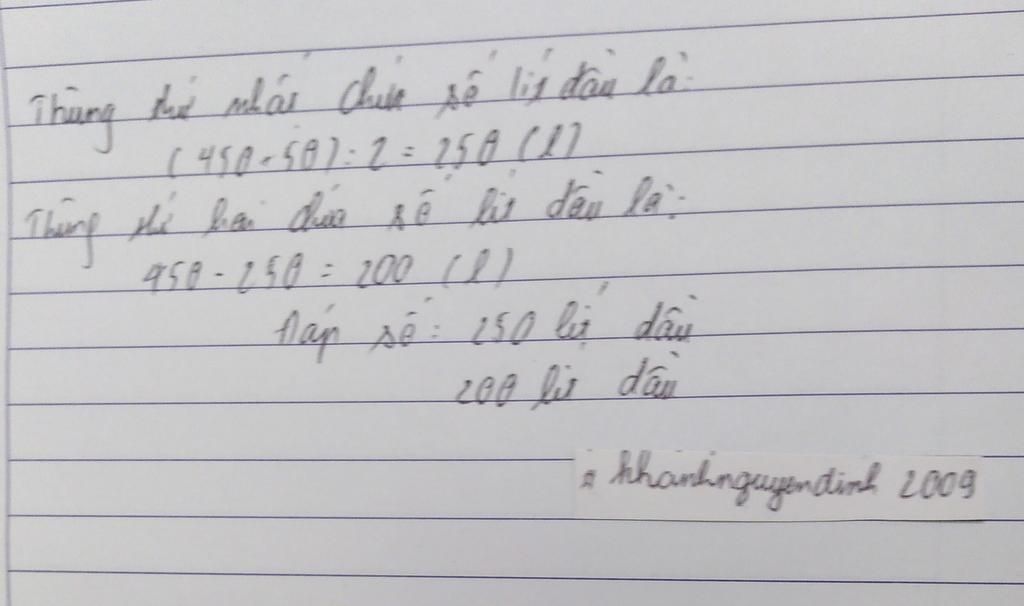 Thùng thứ nhất chứa số lít dầu là:
(450 + 50) : 2 = 250 (l)
Thùng thứ hai chứa số lít dầu là:
450 - 250 = 200 (l)
Đáp số: 250 lít dầu
200 lít dầu
khanhnguyendinh 2009